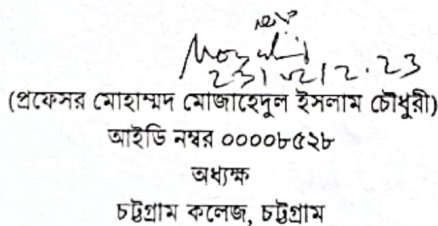 (প্রফেসর মোহাম্মদ মোজাহেদুল ইসলাম চৌধুরী)
আইডি নম্বর ০০০০৮৫২৮
অধ্যক্ষ
চট্টগ্রাম কলেজ, চট্টগ্রাম